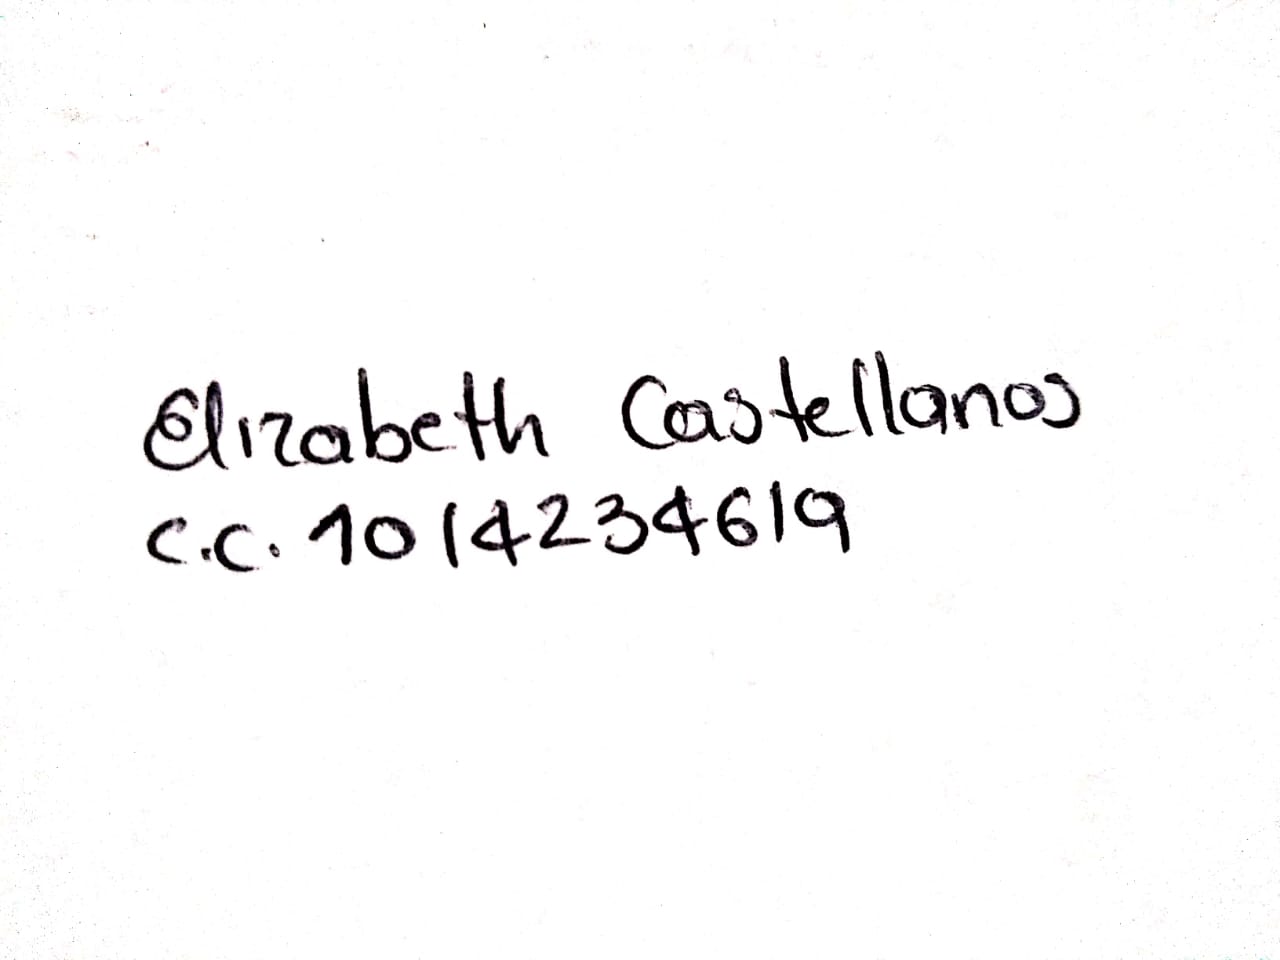 Elizabeth Castellanos
C.C. 1014234619